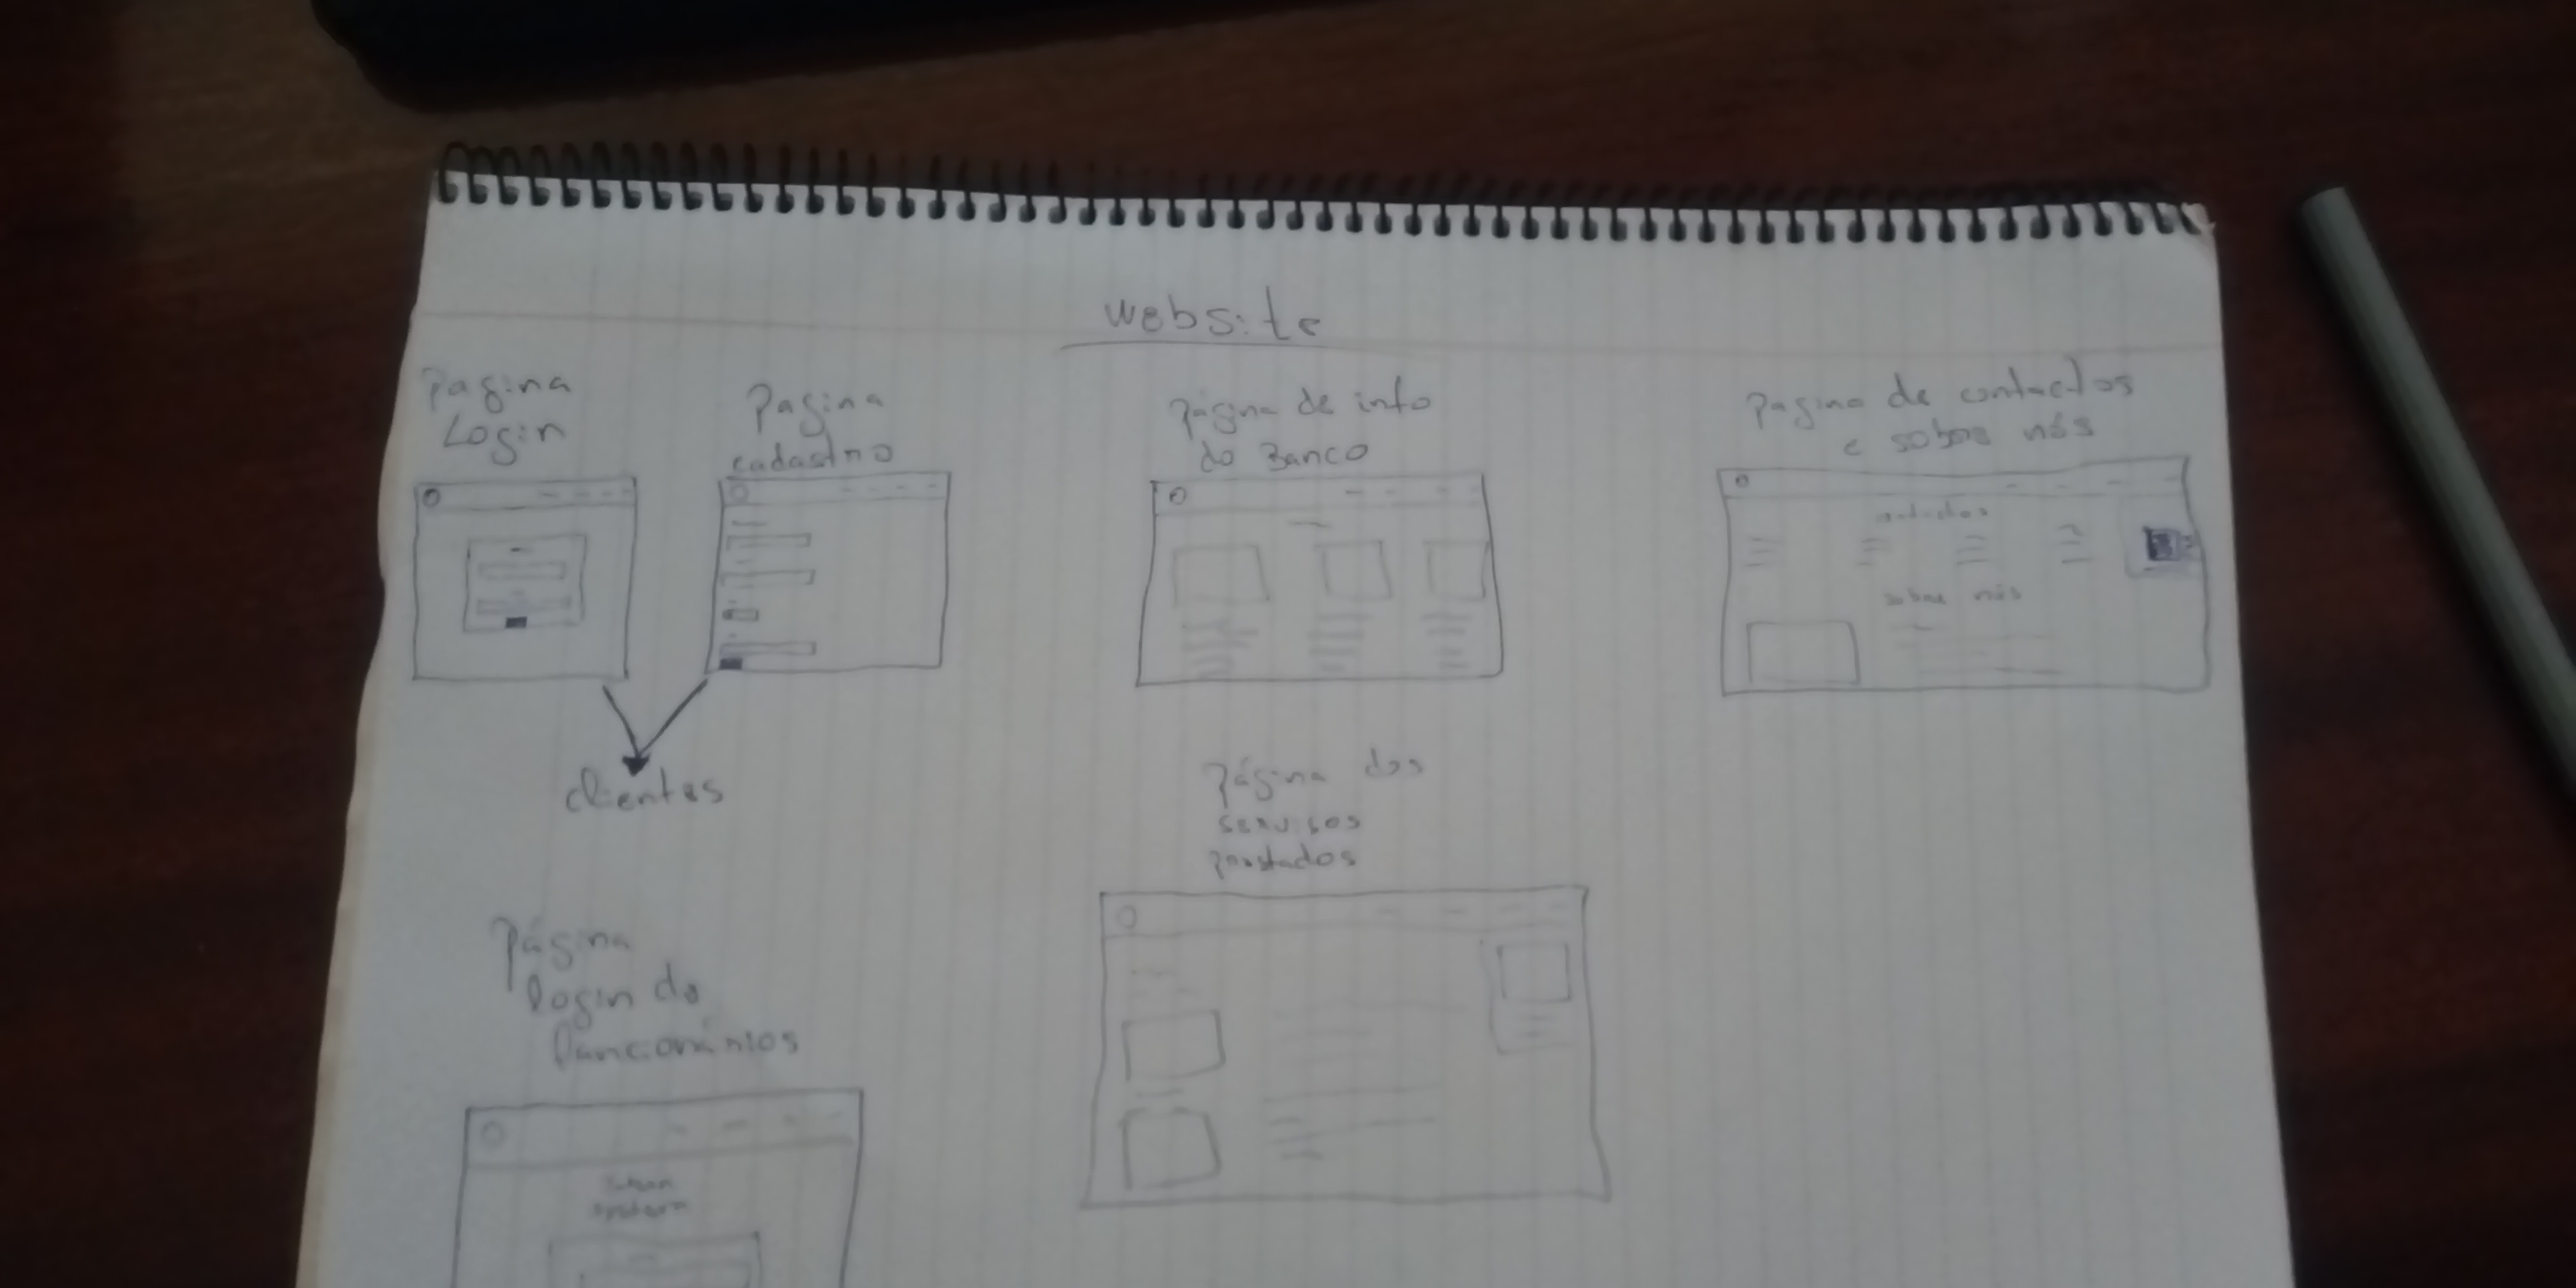 website
Pagina
Login
Pagina
cadastro
Página de info
do Banco
Pagina de contactos
e sobre nós
contactos
sobre nós
clientes
Página dos
serviços
prestados
Página
login do
funcionários
system